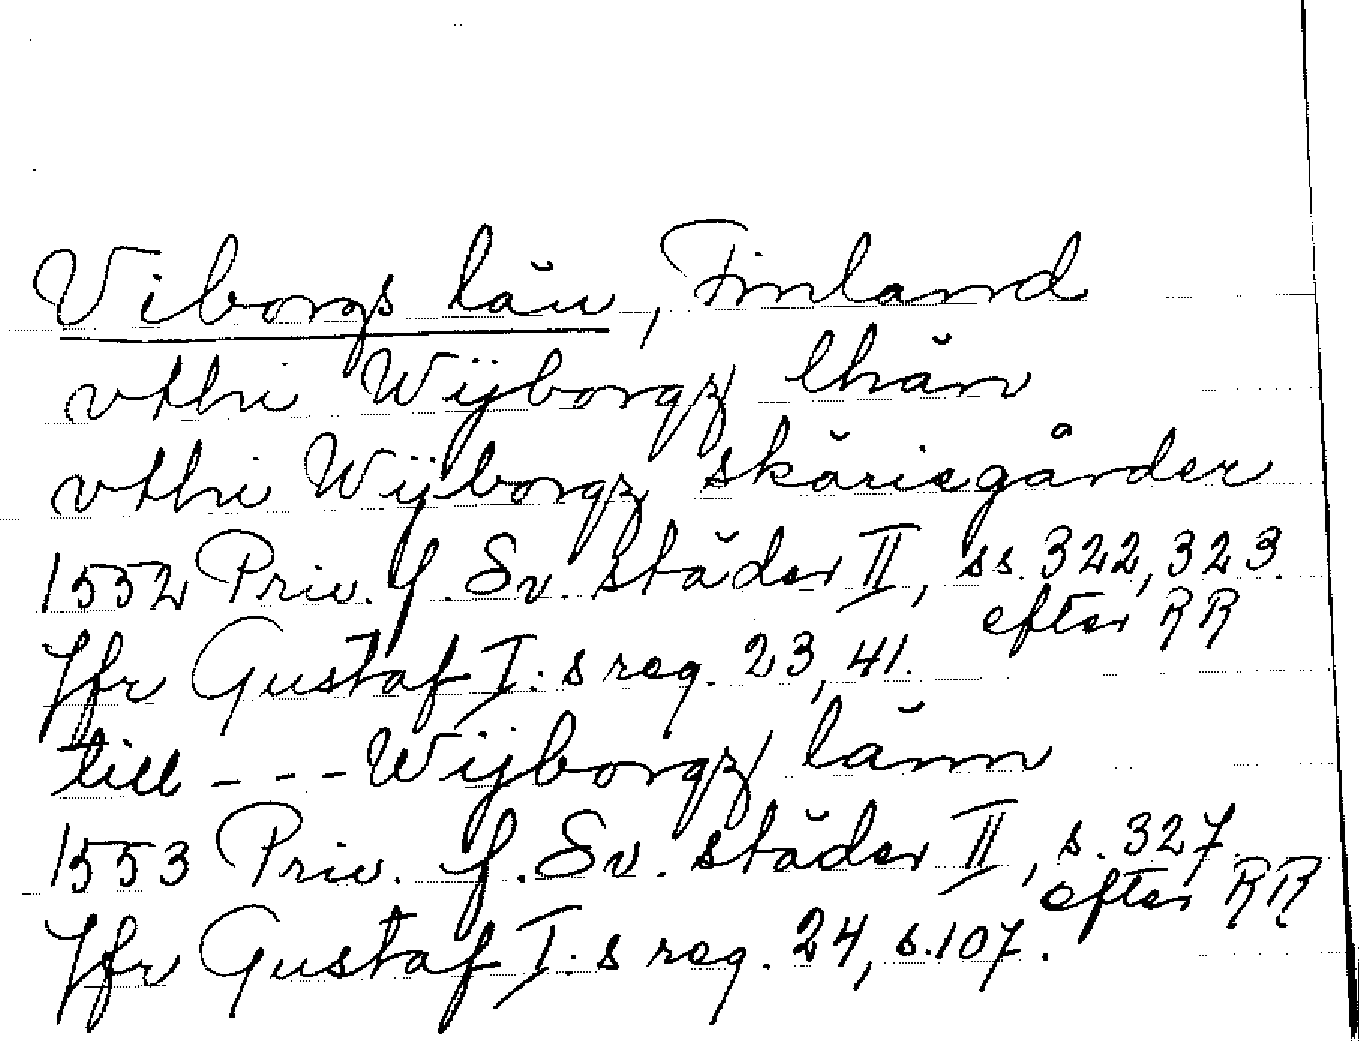 Viborgs län, Finland
vthi Wijborgz lhän
vthi Wijborgz skärisgårder
1552 Priv. f. Sv. städer II, ss. 322, 323.
efter RR
Jfr Gustaf I:s reg. 23, 41.
till - - - Wijborgz länn
1553 Priv. f. Sv. städer II, s. 327.
efter RR
Jfr Gustaf I:s reg. 24, s. 107.